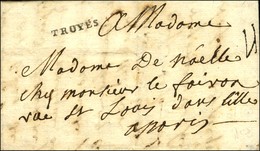 TROYES
A Madame
Madame De néelle
chez monsieur le
rue st Louis dans lille
a paris